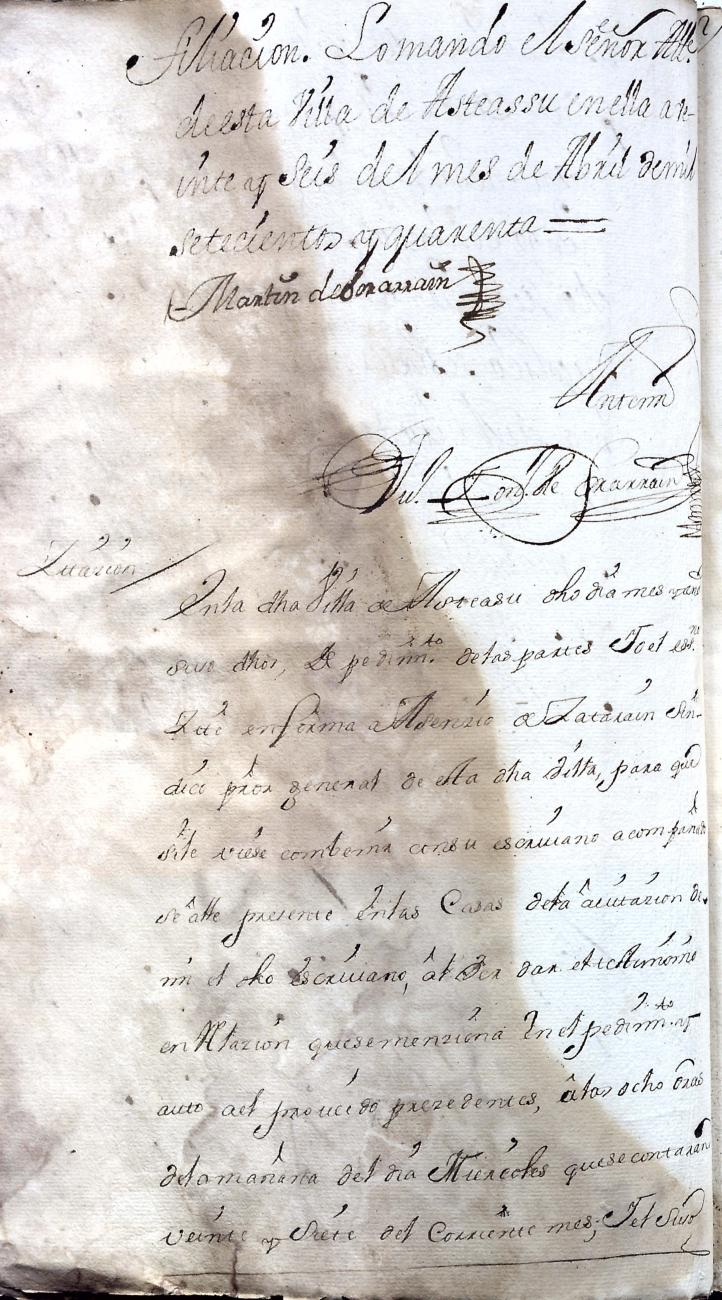 filiacion. Lo mando el señor Alle
de esta Villa de Asteassu en ella a ve-
inte y seis del mes de Abril de mil
setecientos y quarenta =
Martin de Sorarrain
Antemi
de Sorarrain
Zitacion
En la dha Villa de Asteasu dho dia mes
suso dhos, de pedimto. de las partes Yo el essno
Zite en forma a Asenzio de Zatarain Sin-
dico pror general de esta dha Villa, para que
si le viese combenir con su escriuano acompañado
se alle presente en las Casas de la auitazion de
mi el dho escriuano, al ver dar el testimonio
en Relazion que se menziona en el pedimto. y
auto a el proueido prezedentes, a las ocho oras
de la mañana del dia Miercoles que se contaran
veinte y siete del Corriente mes; Y el suso